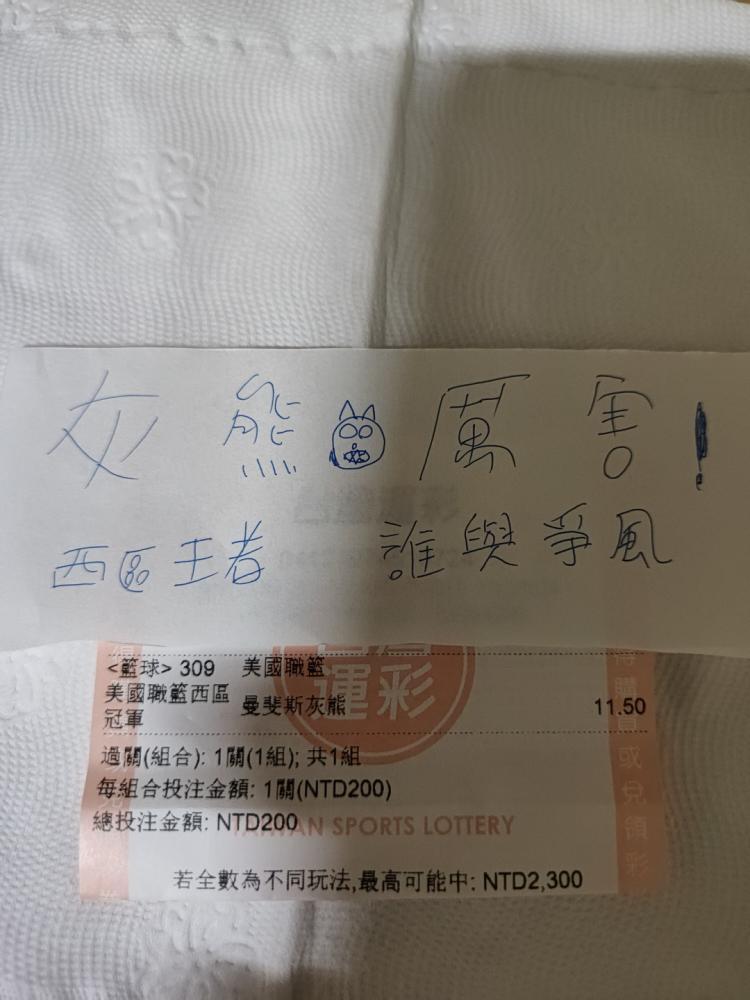 灰熊厲害!
西區王者 誰與爭風
<籃球> 309 美國職籃
美國職籃西區冠軍 曼斐斯灰熊 11.50
過關(組合): 1關(1組); 共1組
每組合投注金額: 1關(NTD200)
總投注金額: NTD200
TAIWAN SPORTS LOTTERY
若全數為不同玩法,最高可能中: NTD2,300
運彩